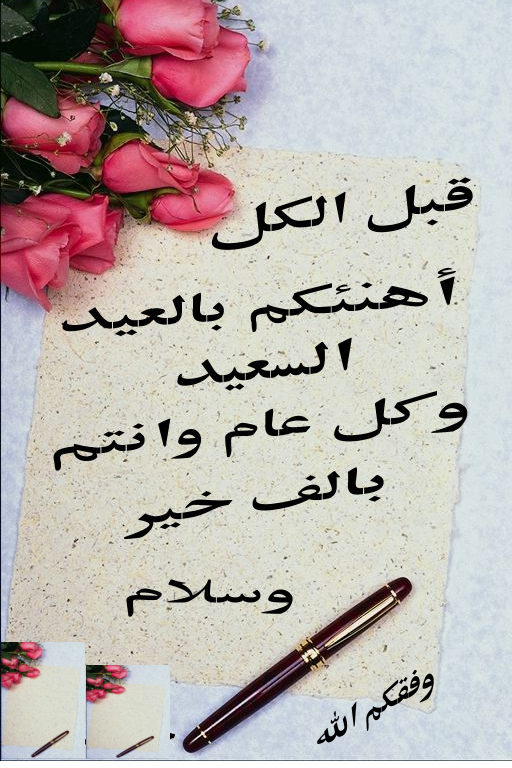 قبل الكل
أهنئكم بالعيد
السعيد
وكل عام وانتم
بالف خير
وسلام
وفقكم الله